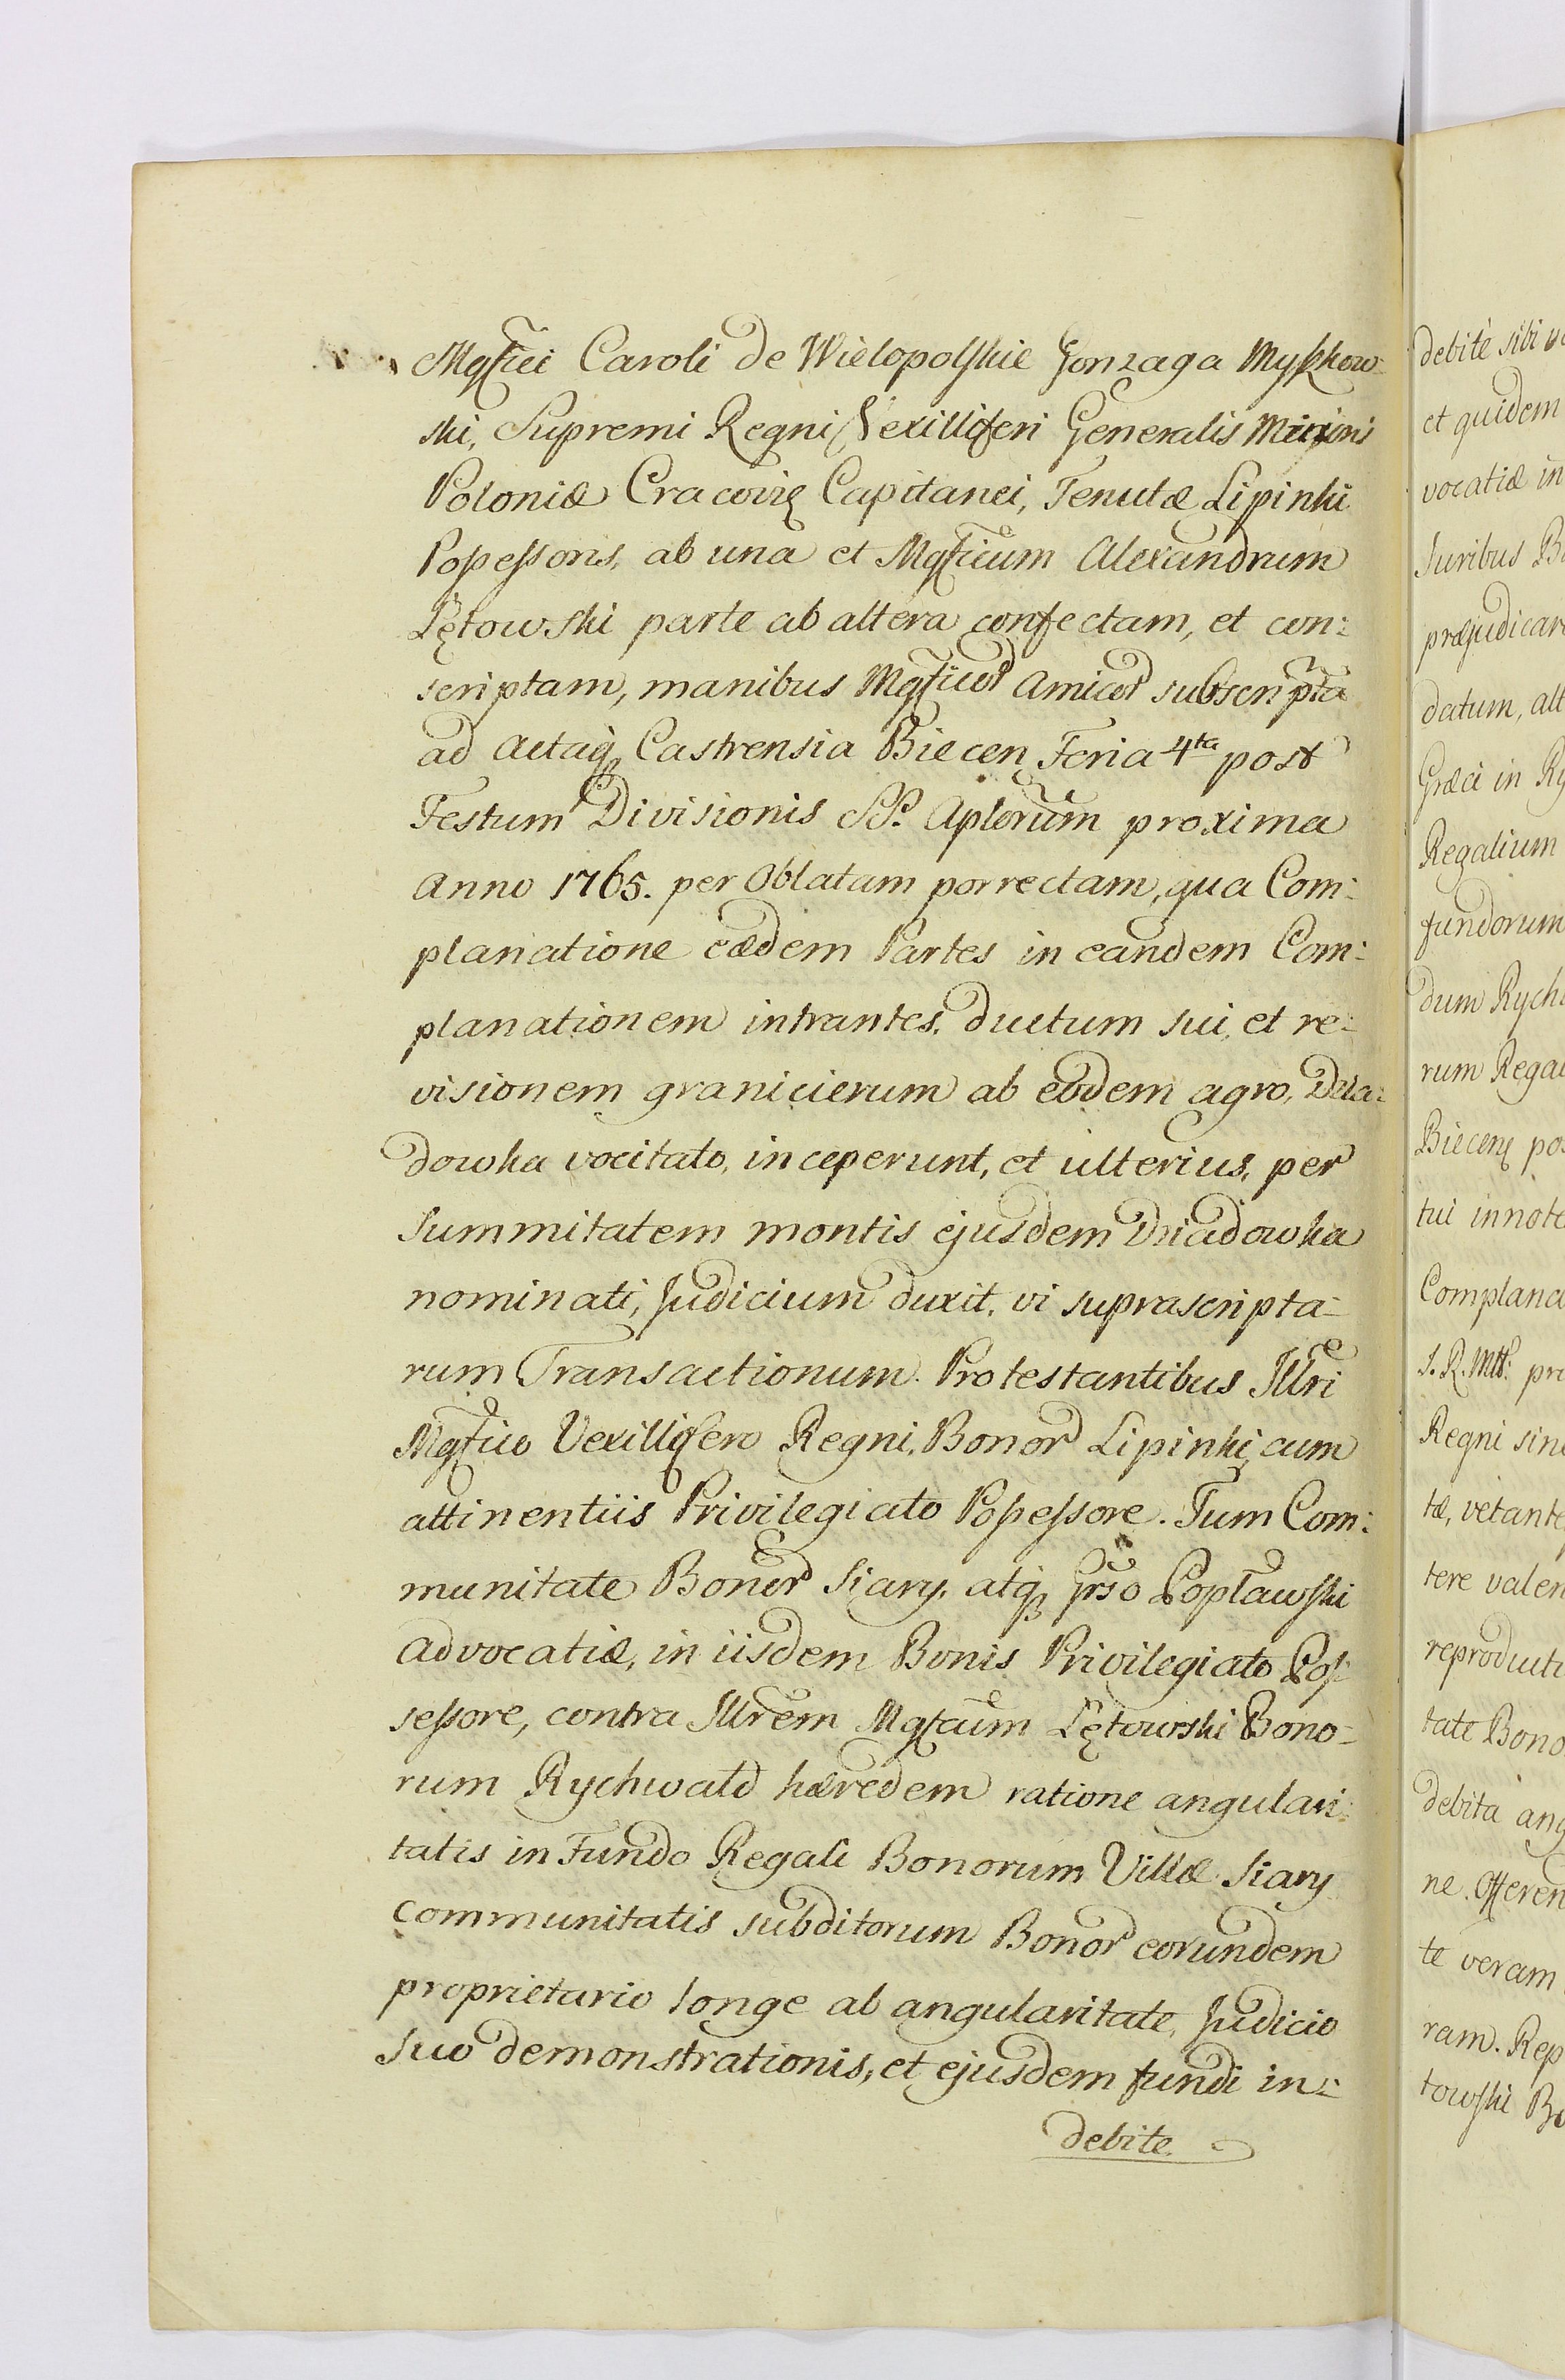 Mgficei Caroli de Wielopolskie Gonzaga Myszkow:
ski, Supremi Regni Vexilliferi Generalis Minoris
Poloniæ Cracovię Capitanei, Tenutæ Lipinki
Possessoris, ab una et Mgficum Alexandrum
Lętowski parte ab altera confectam, et con:
scriptam, manibus Mgficor Amicor subscripta
ad Actaq Castrensia Biecen Feria 4ta post
Festum Divisionis SS. Aplorum proxima
Anno 1765. per Oblatam porrectam, qua Com:
planatione eædem Partes in eandem Com:
planationem intrantes, ductum sui, et re:
visionem granicierum ab eodem agro,
dowka vocitato, inceperunt, et ulterius, per
Summitatem montis ejusdem Dziadowka
nominati, Judicium duxit, vi suprascripta-
rum Transactionum. Protestantibus Illri
Mgfico Vexillifero Regni, Bonor Lipinki cum
attinentiis Privilegiato Possessore. Tum Com:
munitate Bonor Siary, atq Grso Popławski
Advocatiæ, in iisdem Bonis Privilegiato Pos-
sessore, contra Illrem Mgfcum Lętowski Bono-
rum Rychwald hæredem ratione angulari:
tatis in Fundo Regali Bonorum Villæ Siary
Communitatis subditorum Bonor eorundem
proprietario longe ab angularitate, Judicio
Suo demonstrationis, et ejusdem fundi in:
debite.
debitè sibi
et quidem
vocatiæ in
Juribus
præjudicar
datum, alt
Græci in Ry
Regalium
fundorum
dum Rych
rum Regal
Biecenę pos
tui innote
Complana
S. R. Mtt: pr
Regni sine
tæ, vetante
tere valen
reproducti
tate Bono
debita ang
ne. Offeren
te veram
ram. Rep
towski Bo